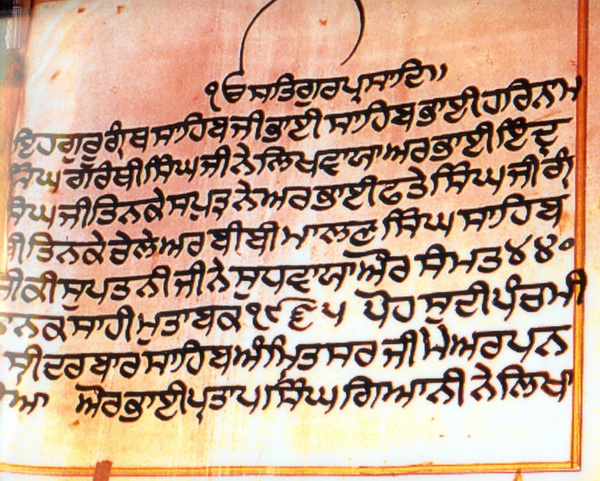 ੴ ਸਤਿਗੁਰਪ੍ਰਸਾਦਿ॥
ਇਹ ਗੁਰੂ ਗ੍ਰੰਥ ਸਾਹਿਬ ਜੀ ਭਾਈ ਸਾਹਿਬ ਭਾਈ ਹਰਿਨਾਮ
ਸਿੰਘ ਗਰੰਥੀ ਸਿੰਘ ਜੀ ਨੇ ਲਿਖਵਾਯਾ ਅਰ ਭਾਈ ਇੰਦ੍ਰ
ਸਿੰਘ ਜੀ ਤਿਨਕੇ ਸਪੁਤ੍ਰ ਨੇ ਅਰ ਭਾਈ ਫਤੇ ਸਿੰਘ ਜੀ ਗ੍ਰੰ
ਤਿਨਕੇ ਚੇਲੇ ਅਰ ਬੀਬੀ ਮਾਲਣ ਸਿੰਘ ਸਾਹਿਬ
ਜੀ ਕੀ ਸੁਪਤਨੀ ਜੀ ਨੇ ਸੁਧਵਾਯਾ ਔਰ ਸੰਮਤ ੪੪੦
ਨਾਨਕ ਸਾਹੀ ਮੁਤਾਬਕ ੧੯੬੫ ਪੋਹ ਸੁਦੀ ਪੰਚਮੀ
ਸ੍ਰੀ ਦਰਬਾਰ ਸਾਹਿਬ ਅੰਮ੍ਰਿਤਸਰ ਜੀ ਮੇ ਅਰਪਨ
ਔਰ ਭਾਈ ਪ੍ਰਤਾਪ ਸਿੰਘ ਗਿਆਨੀ ਨੇ ਲਿਖਾ